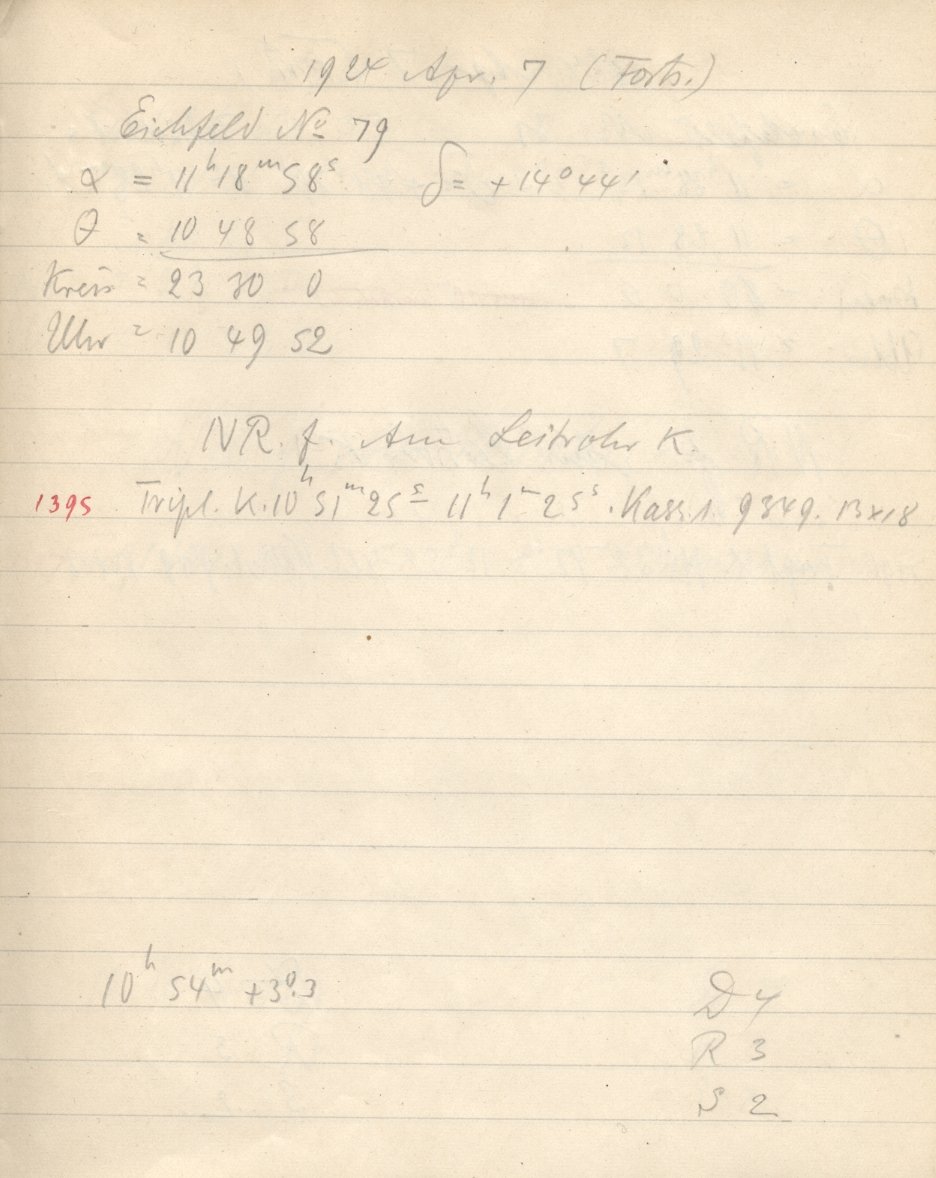 1924 Apr. 7 (Forts.)
Eichfeld No 79
α = 11h 18m 58s δ = +14° 44'
θ = 10 48 58
Kreis = 23 30 0
Uhr = 10 49 52
NR. f. Am Leitrohr K.
1395 Tripl. K. 10h 51m 25s – 11h 1m 25s. Kass. 1. 9349. 13x18
10h 54m +3°.3
D 4
R 3
S 2